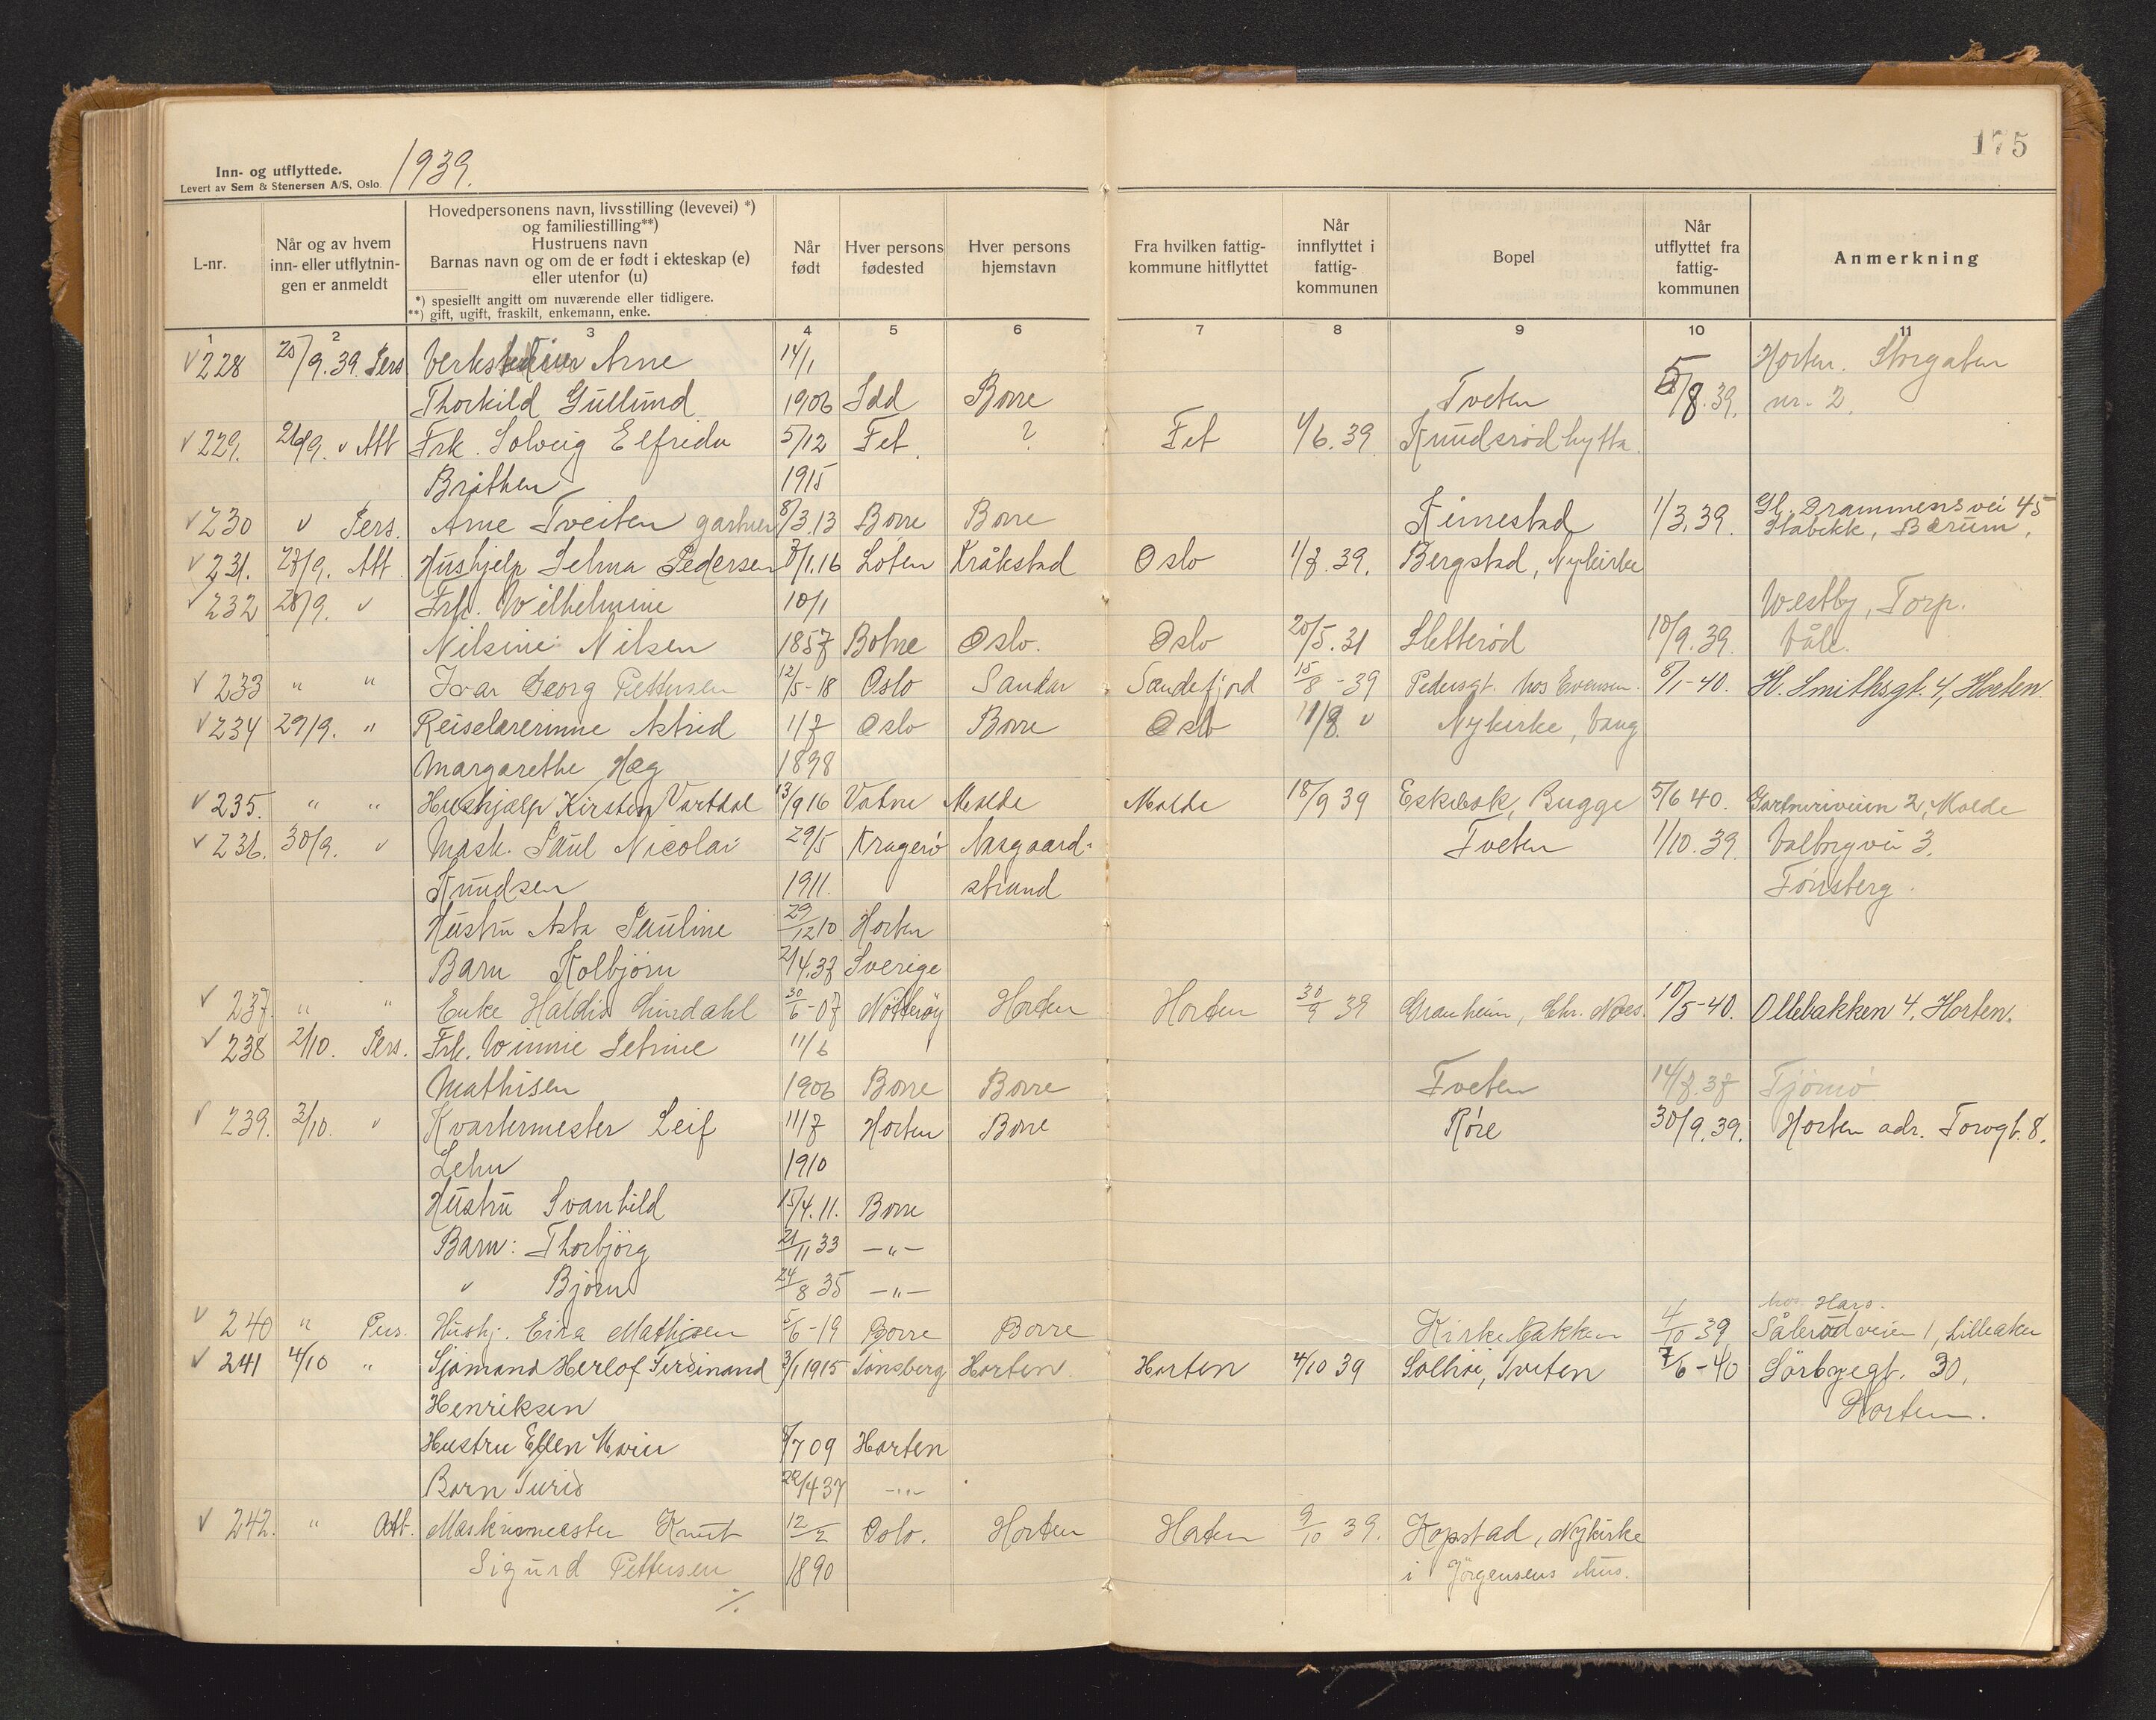 175
Inn- og utflyttede.
Levert av Sem & Stenersen A/S, Oslo.
1939.
L-nr.
Når og av hvem inn- eller utflytningen er anmeldt
Hovedpersonens navn, livsstilling (levevei) *)
og familiestilling**)
Hustruens navn
Barnas navn og om de er født i ekteskap (e)
eller utenfor (u)
*) spesiellt angitt om nuværende eller tidligere.
**) gift, ugift, fraskilt, enkemann, enke.
Når født
Hver persons fødested
Hver persons hjemstavn
Fra hvilken fattigkommune hitflyttet
Når innflyttet i fattigkommunen
Bopel
Når utflyttet fra fattigkommunen
Anmerkning
1 2 3 4 5 6 7 8 9 10 11
228 25/9.39 Pers Arne 14/1 Horten. Storgaten
Thorkild Gullund 1906 Idd Borre Tveten /8.39. nr. 2.
229. 26/9. Att Frk. Solveig Elfrida 5/12 Fet ? Fet 1/6.39. Knudsrødhytta.
Bråthen 1915
230 Pers. Arne Tveiten gartner 8/3.13 Borre Borre Kimestad 1/3.39. Gl. Drammensvei 45
Stabekk, Bærum.
231. 28/9. Att Hushjelp Selma Pedersen /1.16 Løten Kråkstad Oslo 1/8.39. Bergstad, Nykirke
232 28/9. Frk. Wilhelmine 10/1 Westby, Torp.
Nilsine Nilsen 1857 Botne Oslo. Oslo 20/5.31 Sletterød 10/9.39. Våle.
233 " " Ivar Georg Pettersen 12/5-18 Oslo Sandar Sandefjord 15/8-39 Pedersgt. hos Evensen. 8/1-40. H. Smithsgt. 4, Horten.
234 29/9. " Reiselærerinne Astrid 1/7 Oslo Borre Oslo 11/8. Nykirke, Vang
Margarethe Hæg 1898
235. " " Hushjælp Kirsten Vartdal 13/9 16 Vatne Molde Molde 18/9 39 Eskebæk, Bugge 5/6 40. Gartneriveien 2, Molde
236. 30/9. Mask. Paul Nicolai 29/5 Kragerø Aasgaard- Tveten 1/10.39. Valborgvei 3.
Knudsen 1911. strand Tønsberg.
Hustru Asta Pauline 29/12 10 Horten
Barn Kolbjørn 21/4.37 Sverige
237. " " Enke Haldis Lindahl 30/6-07 Nøtterøy Horten Horten 30/9 39 Granheim, Chr. Næs. 10/5-40. Ollebakken 4, Horten.
238 2/10. Pers. Frk. Winnie Petrine 11/6
Mathisen 1906 Borre Borre Tveten 14/7.37 Tjømø
239. 3/10. Kvartermester Leif 11/7 Horten Borre Røre 30/9.39. Horten adr. Torvgt. 8.
Lehn 1910
Hustru Svanhild 15/4.11. Borre
Barn: Thorbjørg 21/11 33 -"-
Bjørn 24/8 35 -"-
hos Hars.
240 " Pers. Hushj. Eina Mathisen 5/6-19 Borre Borre Kirkebakken 4/10 39 Sålerødveien 1, Lilleaker
241 4/10 " Sjømand Herlof Ferdinand 3/1 1915 Tønsberg Horten. Horten 4/10 39 Solhøi, Tveten 7/6-40 Sørbyegt. 30,
Henriksen Horten.
Hustru Ellen Marie /7 09 Horten
Barn Turid 29/4 37 -"-
242. " Att. Maskinmester Knut 12/2 Oslo. Horten Horten 9/10 39. Kopstad, Nykirke
Sigurd Pettersen 1890 i Jørgensens hus.